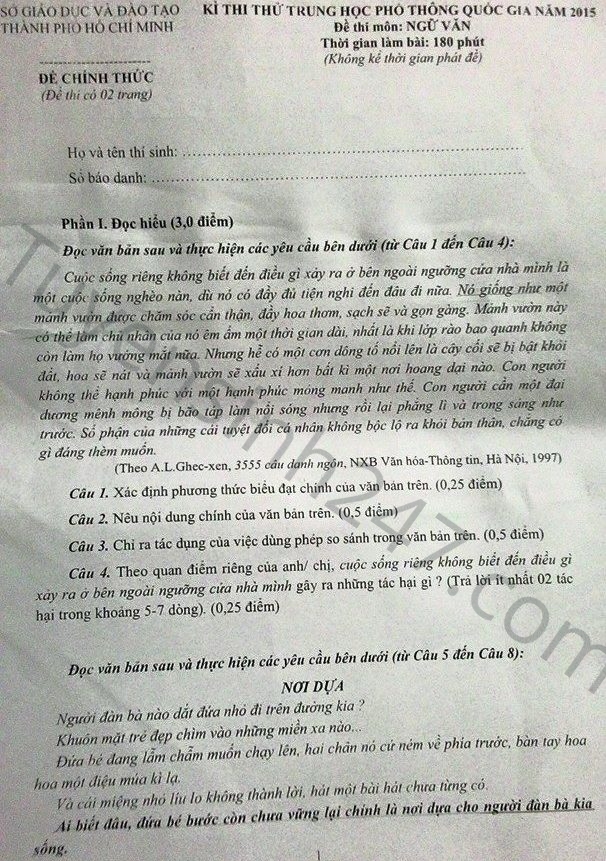 SỞ GIÁO DỤC VÀ ĐÀO TẠO
THÀNH PHỐ HỒ CHÍ MINH
ĐỀ CHÍNH THỨC
(Đề thi có 02 trang)
KÌ THI THỬ TRUNG HỌC PHỔ THÔNG QUỐC GIA NĂM 2015
Đề thi môn: NGỮ VĂN
Thời gian làm bài: 180 phút
(Không kể thời gian phát đề)
Họ và tên thí sinh:
Số báo danh:
Phần I. Đọc hiểu (3,0 điểm)
Đọc văn bản sau và thực hiện các yêu cầu bên dưới (từ Câu 1 đến Câu 4):
Cuộc sống riêng không biết đến điều gì xảy ra ở bên ngoài ngưỡng cửa nhà mình là
một cuộc sống nghèo nàn, dù nó có đầy đủ tiện nghi đến đâu đi nữa. Nó giống như một
mảnh vườn được chăm sóc cẩn thận, đầy hoa thơm, sạch sẽ và gọn gàng. Mảnh vườn này
có thể làm chủ nhân của nó êm ấm một thời gian dài, nhất là khi lớp rào bao quanh không
còn làm họ vướng mắt nữa. Nhưng hễ có một cơn dông tố nổi lên là cây cối sẽ bị bật khỏi
đất, hoa sẽ nát và mảnh vườn sẽ xấu xí hơn bất kì một nơi hoang dại nào. Con người
không thể hạnh phúc với một hạnh phúc mỏng manh như thế. Con người cần một đại
dương mênh mông bị bão táp làm nổi sóng nhưng rồi lại phẳng lì và trong sáng như
trước. Số phận của những cái tuyệt đối cá nhân không bộc lộ ra khỏi bản thân, chẳng có
gì đáng thèm muốn.
(Theo A.L.Ghec-xen, 3555 câu danh ngôn, NXB Văn hóa-Thông tin, Hà Nội, 1997)
Câu 1. Xác định phương thức biểu đạt chính của văn bản trên. (0,25 điểm)
Câu 2. Nêu nội dung chính của văn bản trên. (0,5 điểm)
Câu 3. Chỉ ra tác dụng của việc dùng phép so sánh trong văn bản trên. (0,5 điểm)
Câu 4. Theo quan điểm riêng của anh/ chị, cuộc sống riêng không biết đến điều gì
xảy ra ở bên ngoài ngưỡng cửa nhà mình gây ra những tác hại gì ? (Trả lời ít nhất 02 tác
hại trong khoảng 5-7 dòng). (0,25 điểm)
Đọc văn bản sau và thực hiện các yêu cầu bên dưới (từ Câu 5 đến Câu 8):
NƠI DỰA
Người đàn bà nào dắt đứa nhỏ đi trên đường kia ?
Khuôn mặt trẻ đẹp chìm vào những miền xa nào...
Đứa bé đang lẫm chẫm muốn chạy lên, hai chân nó cứ ném về phía trước, bàn tay hoa
hoa một điệu múa kì lạ.
Và cái miệng nhỏ líu lo không thành lời, hát một bài hát chưa từng có.
Ai biết đâu, đứa bé bước còn chưa vững lại chính là nơi dựa cho người đàn bà kia
sống.
1
Tuyensinh247.com